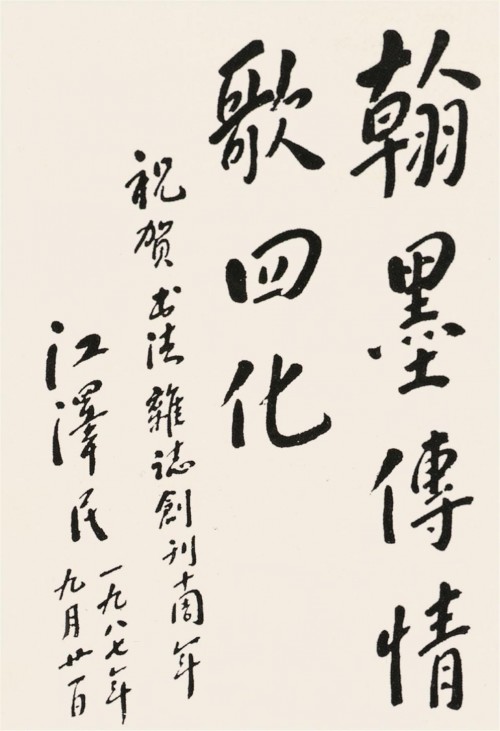 翰墨傳情
歌四化
祝賀书法雜誌創刊十周年
江澤民
一九八七年
九月廿一日